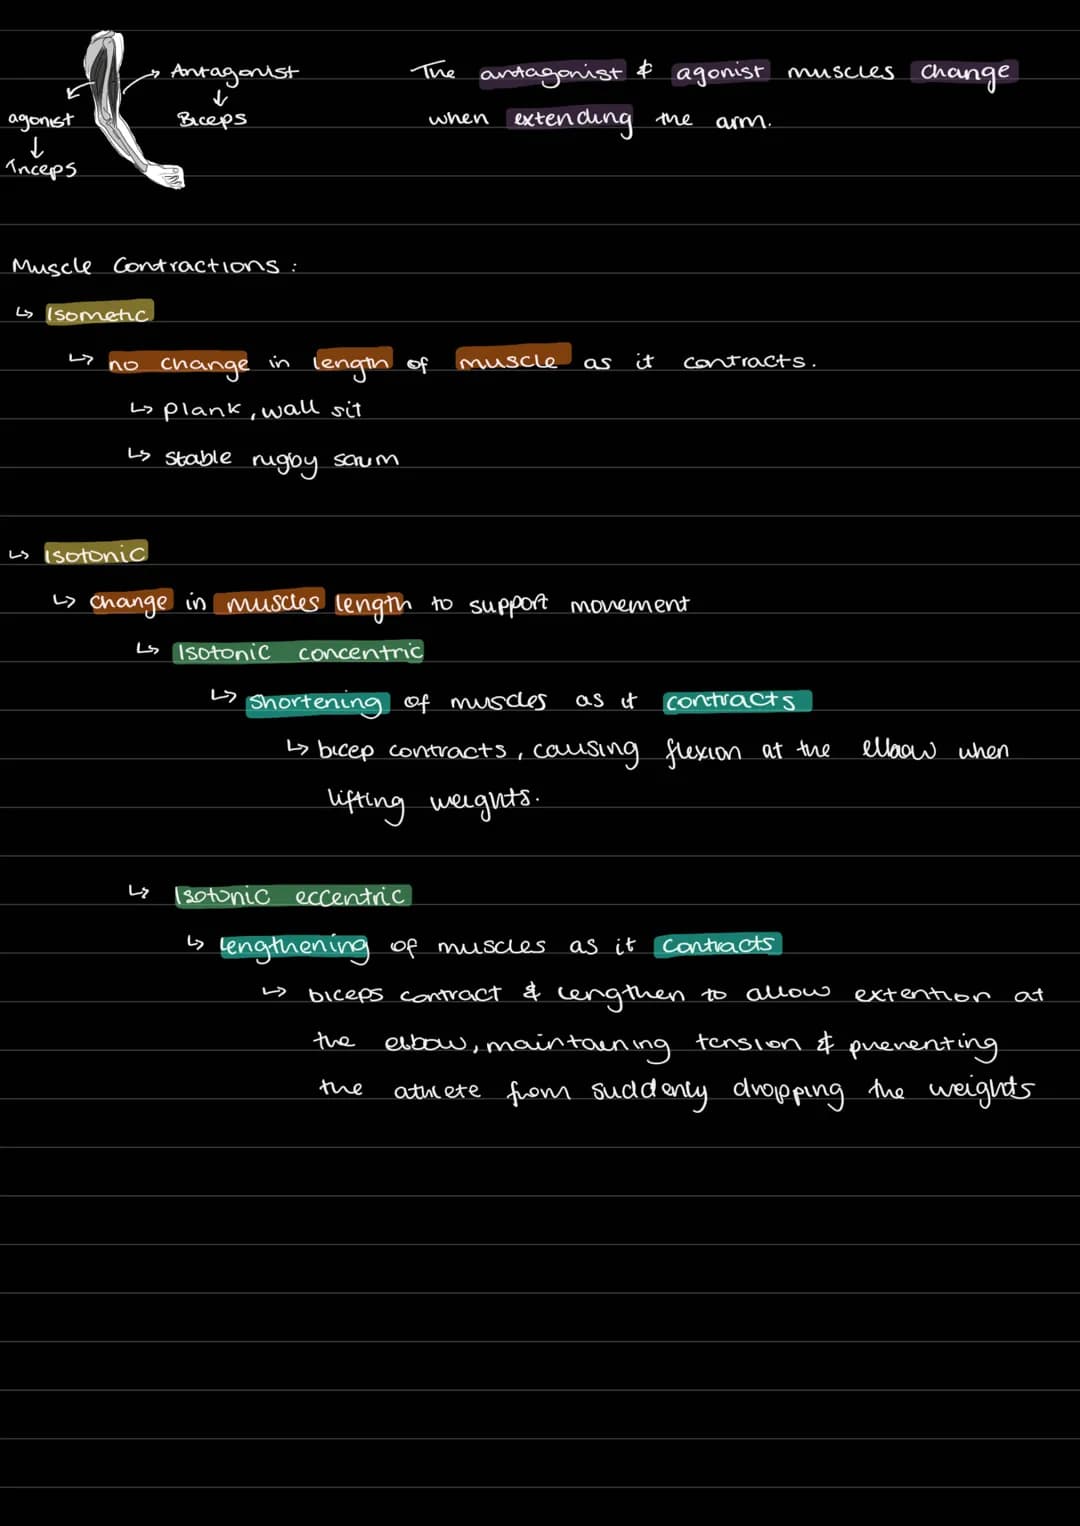 Antagonist
↓
Biceps
agonist
↓
Triceps
The antagonist & agonist muscles change
when extending the arm.
Muscle Contractions :
↳ Isometric
↳ no change in length of muscle as it contracts.
↳ plank, wall sit
↳ stable rugby scrum
↳ Isotonic
↳ change in muscles length to support movement
↳ Isotonic concentric
↳ shortening of muscles as it contracts
↳ bicep contracts, causing flexion at the elbow when
lifting weights.
↳ Isotonic eccentric
↳ lengthening of muscles as it contracts
↳ biceps contract & lengthen to allow extention at
the elbow, maintaining tension & preventing
the athlete from suddenly dropping the weights